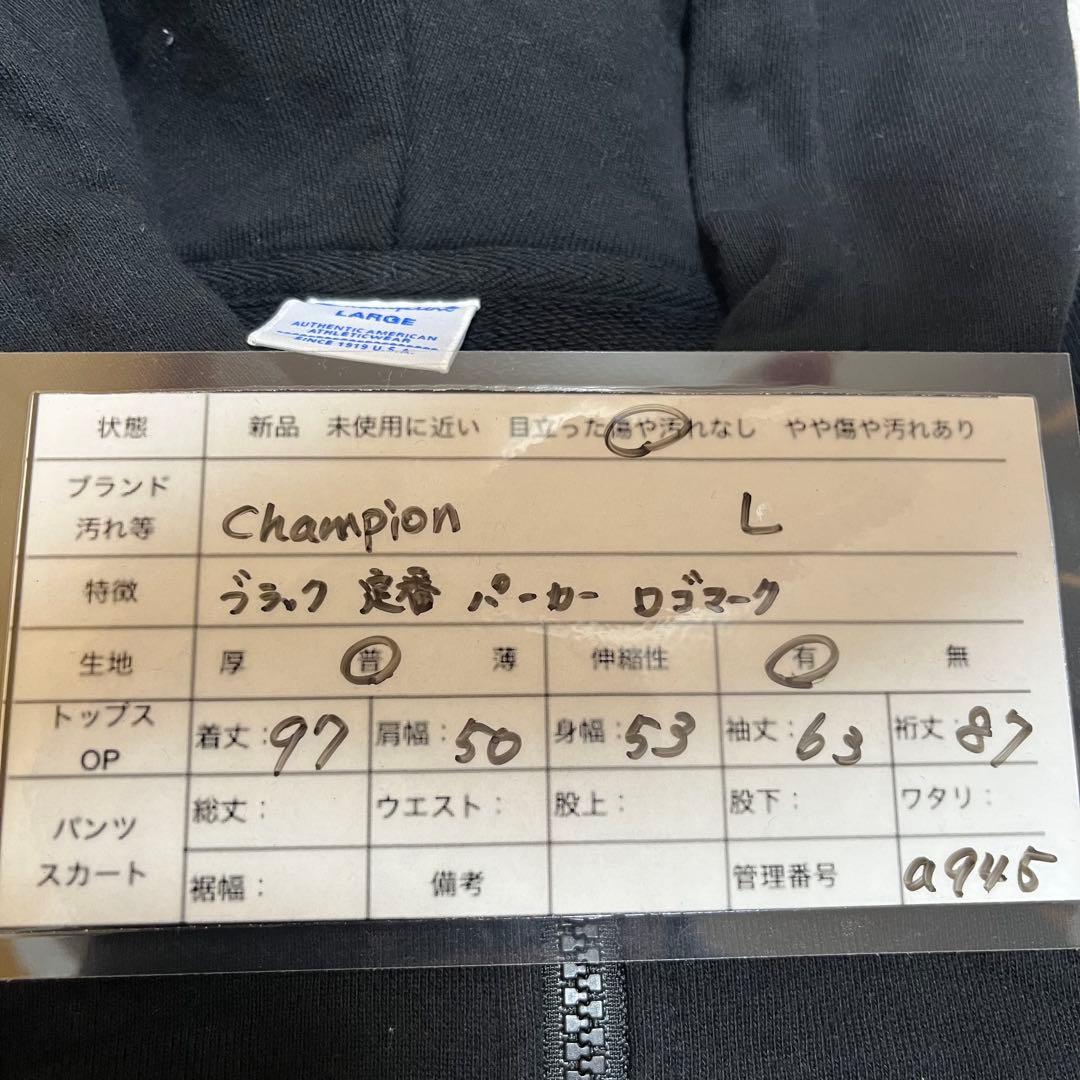 LARGE
AUTHENTIC AMERICAN
ATHLETICWEAR
SINCE 1919 U.S.A.
状態 新品 未使用に近い 目立った傷や汚れなし やや傷や汚れあり
ブランド
汚れ等 Champion L
特徴 ブラック 定番 パーカー ロゴマーク
生地 厚 普 薄 伸縮性 有 無
トップス
OP 着丈:97 肩幅:50 身幅:53 袖丈:63 裄丈:87
パンツ
スカート 総丈: ウエスト: 股上: 股下: ワタリ:
裾幅: 備考 管理番号 a945